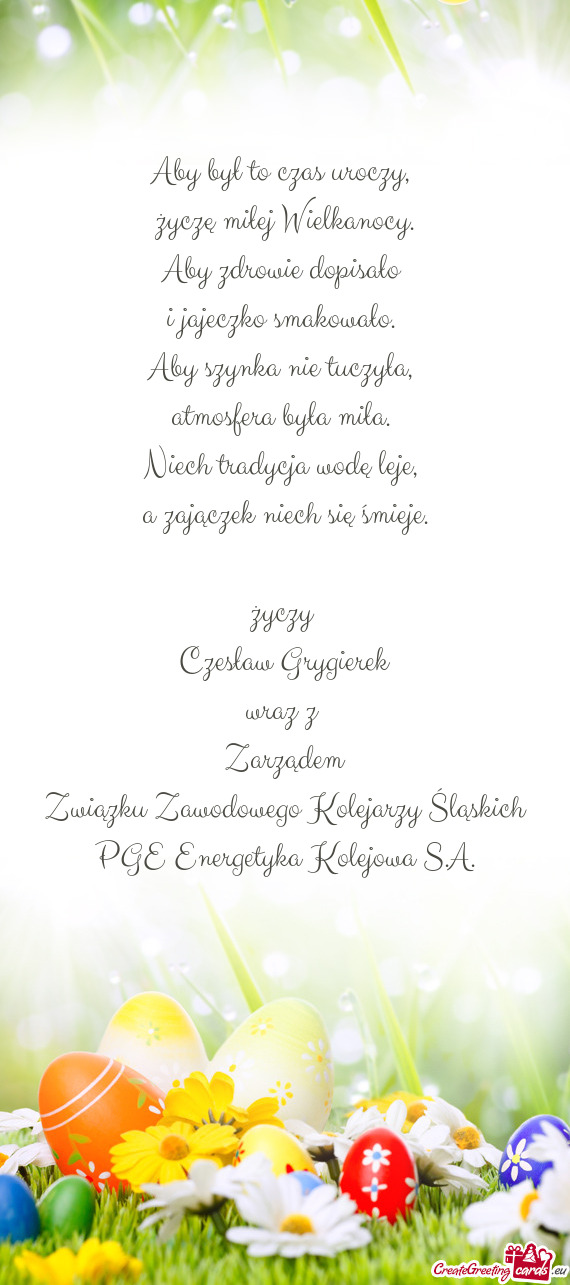 Aby był to czas uroczy,
życzę miłej Wielkanocy.
Aby zdrowie dopisało
i jajeczko smakowało.
Aby szynka nie tuczyła,
atmosfera była miła.
Niech tradycja wodę leje,
a zajączek niech się śmieje.
życzy
Czesław Grygierek
wraz z
Zarządem
Związku Zawodowego Kolejarzy Śląskich
PGE Energetyka Kolejowa S.A.
CreateGreeting cards .eu